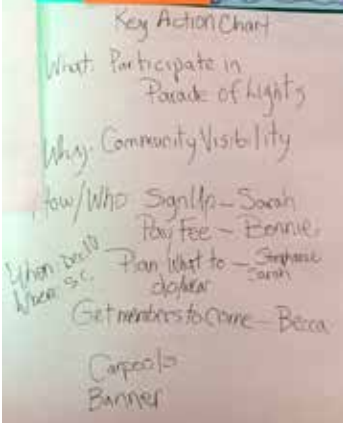 Key Action Chart
What: Participate in
Parade of Lights
Why: Community Visibility
How/Who Sign Up - Sarah
Pay Fee - Bonnie
When: Dec 10
Plan What to - Stephanie
Sarah
do/wear
Where: S.C.
Get members to come - Becca
Carpools
Banner